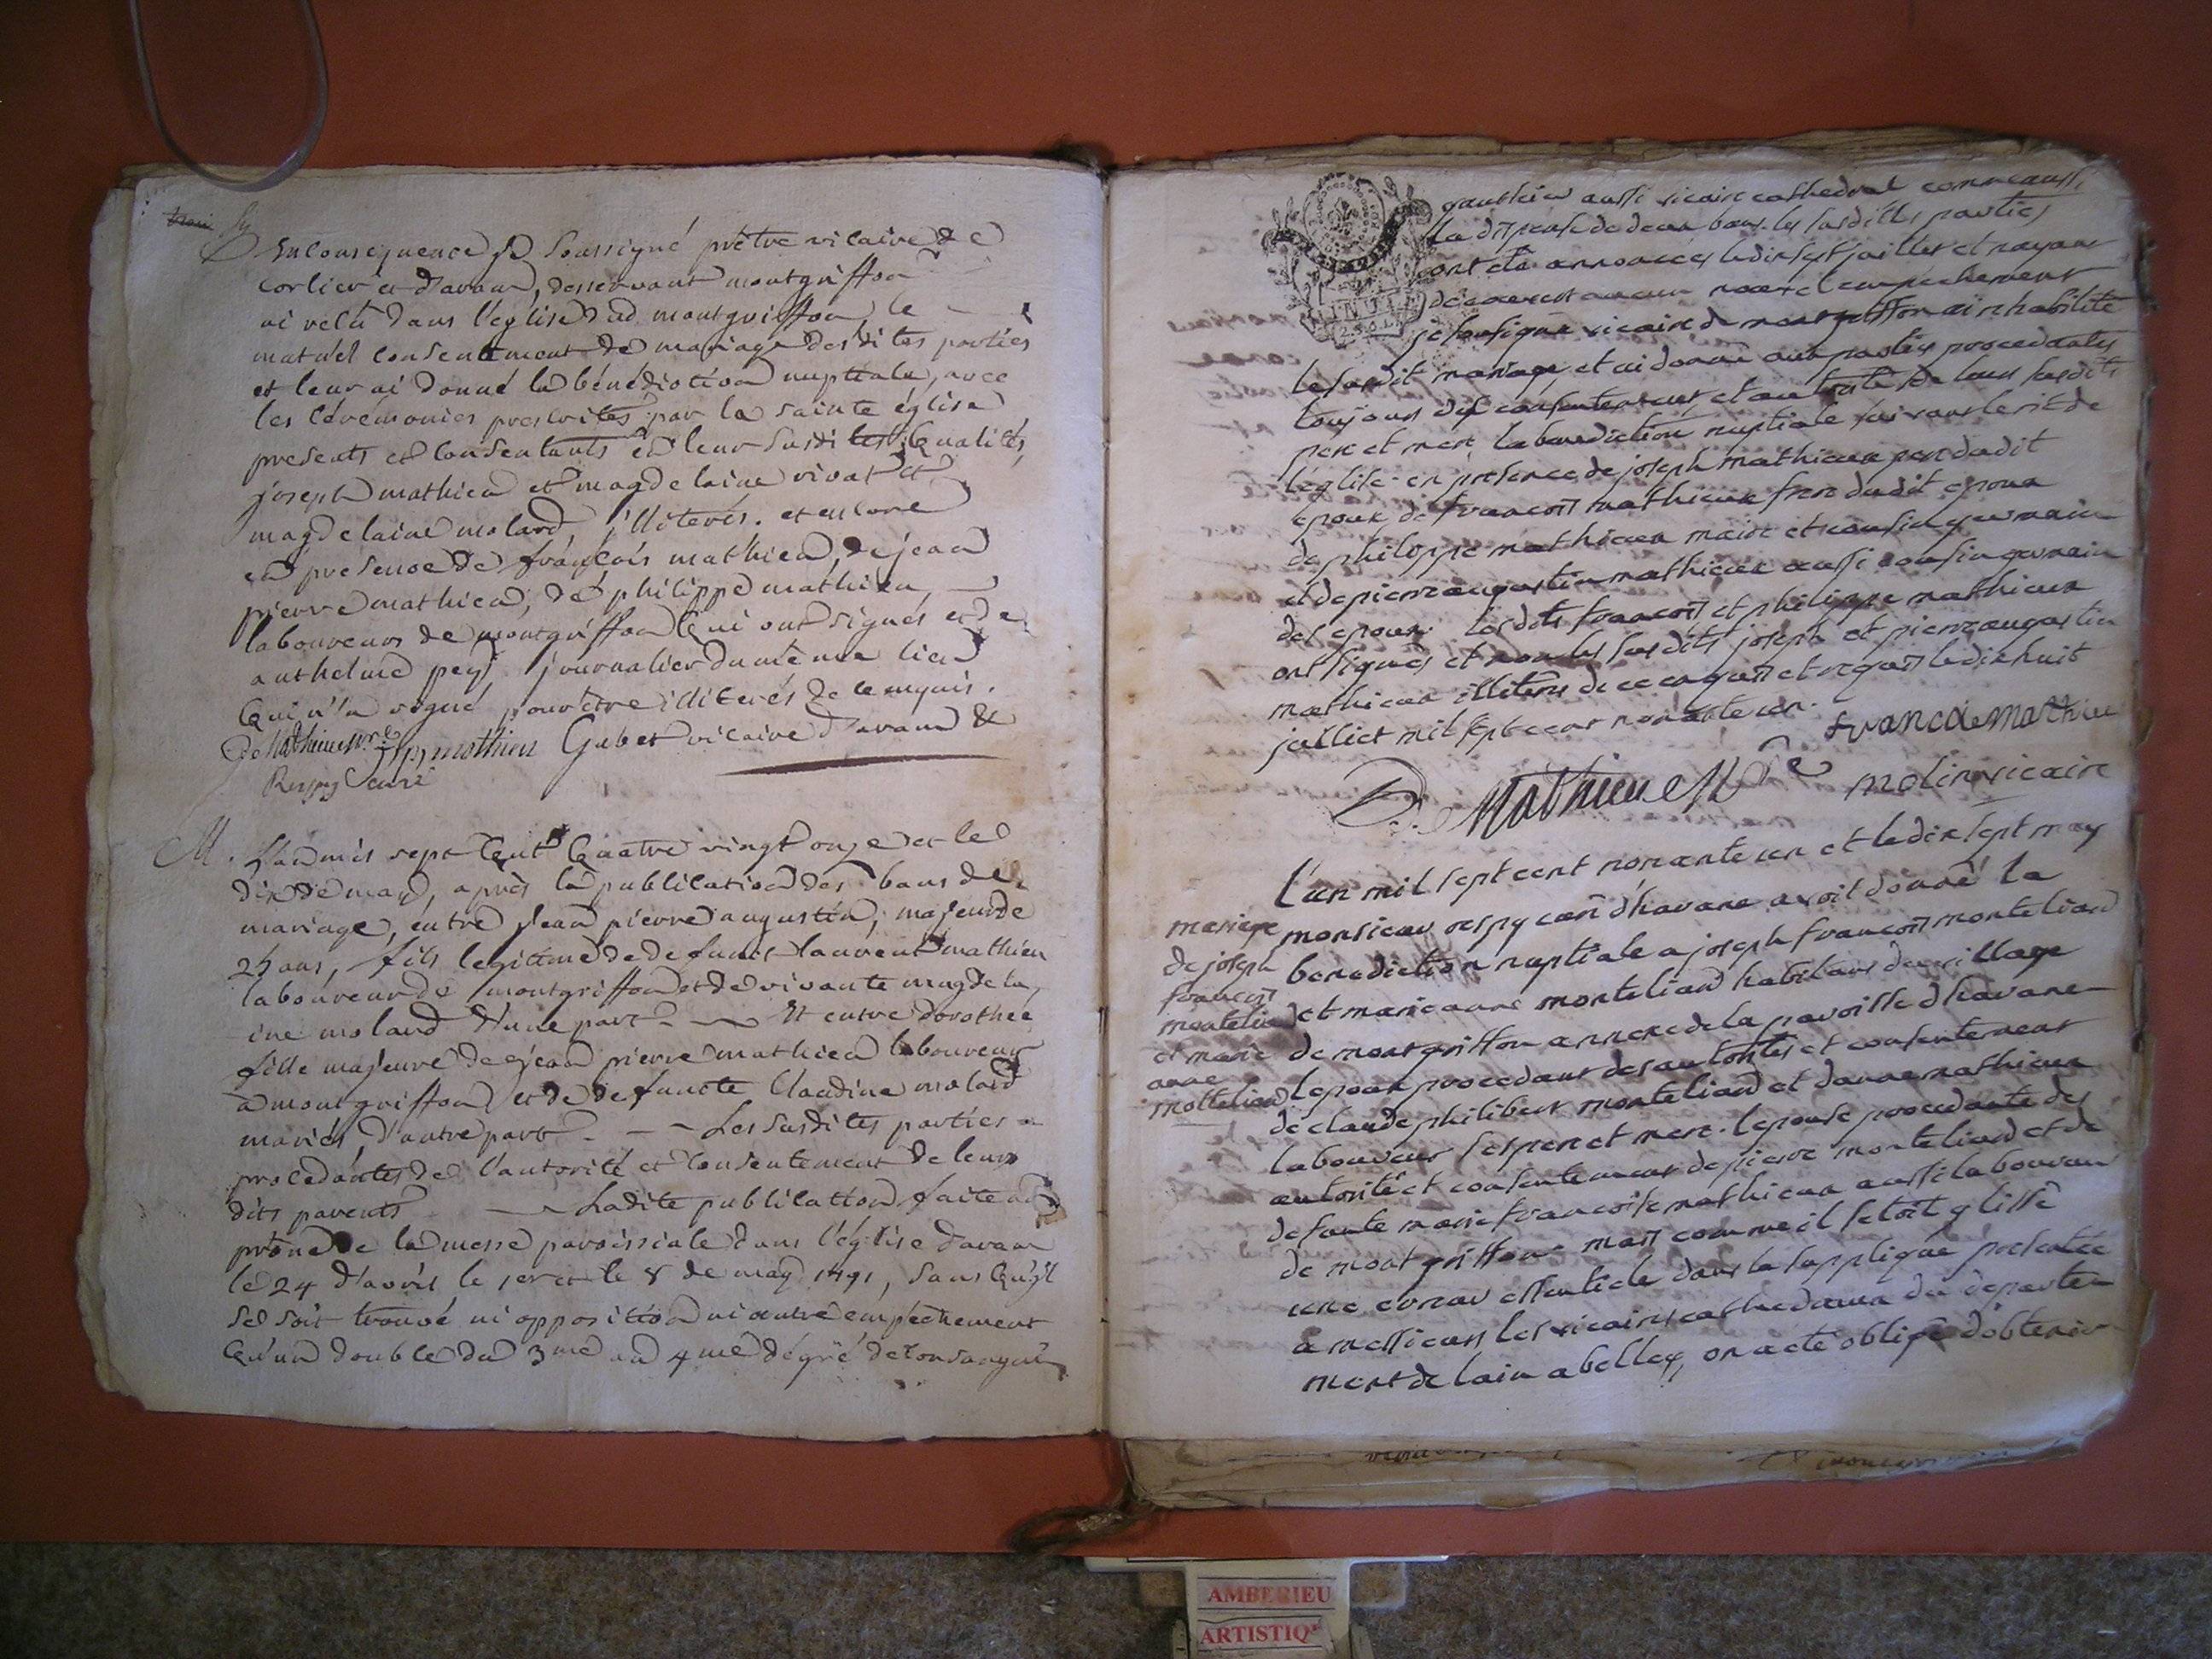 En consequence je soussigné prêtre vicaire de
corlier et d'avane, desservant montgriffon
ai vêtu dans l'église dud montgriffon le
mutuel consentement de mariage desdites parties
et leur ai donné la bénédiction nuptiale, avec
les cérémonies prescrites par la sainte église
presents et consentants en leur susdites qualités
joseph mathieu et magdelaine vivat et
magdelaine molard, illiterés. et encore
en présence de françois mathieu, de jean
pierre mathieu, de philippe mathieu,
laboureurs de montgriffon qui ont signés et de
anthelme pey journalier du même lieu
qui n'a signé pour être illiterés de ce enquis.
D. Mathieu M.re J p mathieu Gubet vicaire d'avane &
Respy curé
M. L'an mil sept cent quatre vingt onze et le
dix de may, après la publication des bans de
mariage, entre jean pierre augustin, majeur de
25 ans, fils legitime de defunt laurent mathieu
laboureur de montgriffon et de vivante magdela,
ine molard d'une part Et entre dorothée
fille majeure de jean pierre mathieu laboureur
a montgriffon et de defuncte Claudine molard
mariés, d'autre part. Les susdites parties
procedantes de l'autorité et consentement de leurs
dits parents Ladite publication faite au
prône de la messe paroissiale dans l'église d'avane
le 24 d'avril le 1er et le 8 de may 1791, sans qu'il
se soit trouvé ni opposition ni autre empêchement
qu'un double du 3me au 4me dégré de consangui
gauthier aussi vicaire cathedral comme aussi
la dispense de deux bans. les susdittes parties
ont été annoncées le dix sept juillet et n'ayant
découvert aucun nouvel empechement
je sousigné vicaire de montgriffon ai rehabilité
le susdit mariage, et ai donné aux parties procedantes
toujours du consentement et autorité de leurs susdits
pere et mere, la benediction nuptiale suivant le rit de
l'église. en presence de joseph mathieu pere dudit
epoux, de francois mathieux frere dudit epoux
de philippe mathieu maire et cousin germain
et de pierre augustin mathieux aussi cousin germain
des epoux. les dits francois et philippe mathieux
ont signés et non les susdits joseph et pierre augustin
mathieux illiterés de ce enquis et requis le dix huit
julliet mil sept cent nonante un.
francoi mathieu
D. Mathieu M.re molin vicaire
L'an mil sept cent nonante un et le dix sept may
monsieur respy curé d'havane avoit donné la
benediction nuptiale a joseph francois monteliard
et marie anne monteliard habitans du village
de montgriffon annexe de la paroisse d'havane
l'epoux procedant des autorités et consentement
de claude philibert monteliard et d'anne mathieux
laboureurs ses pere et mere. l'epouse procedante des
autorité et consentement de pierre monteliard et de
defunte marie francoise mathieux aussi laboureur
de montgriffon mais comme il s'etoit glissé
une erreur essentiele dans la supplique presentée
a messieurs les vicaires cathedraux du departe
ment de l'ain a belley, on a été obligé d'obtenir
mariage
de joseph
francois
monteliard
et marie
anne
monteliard
AMBERIEU
ARTISTIQ